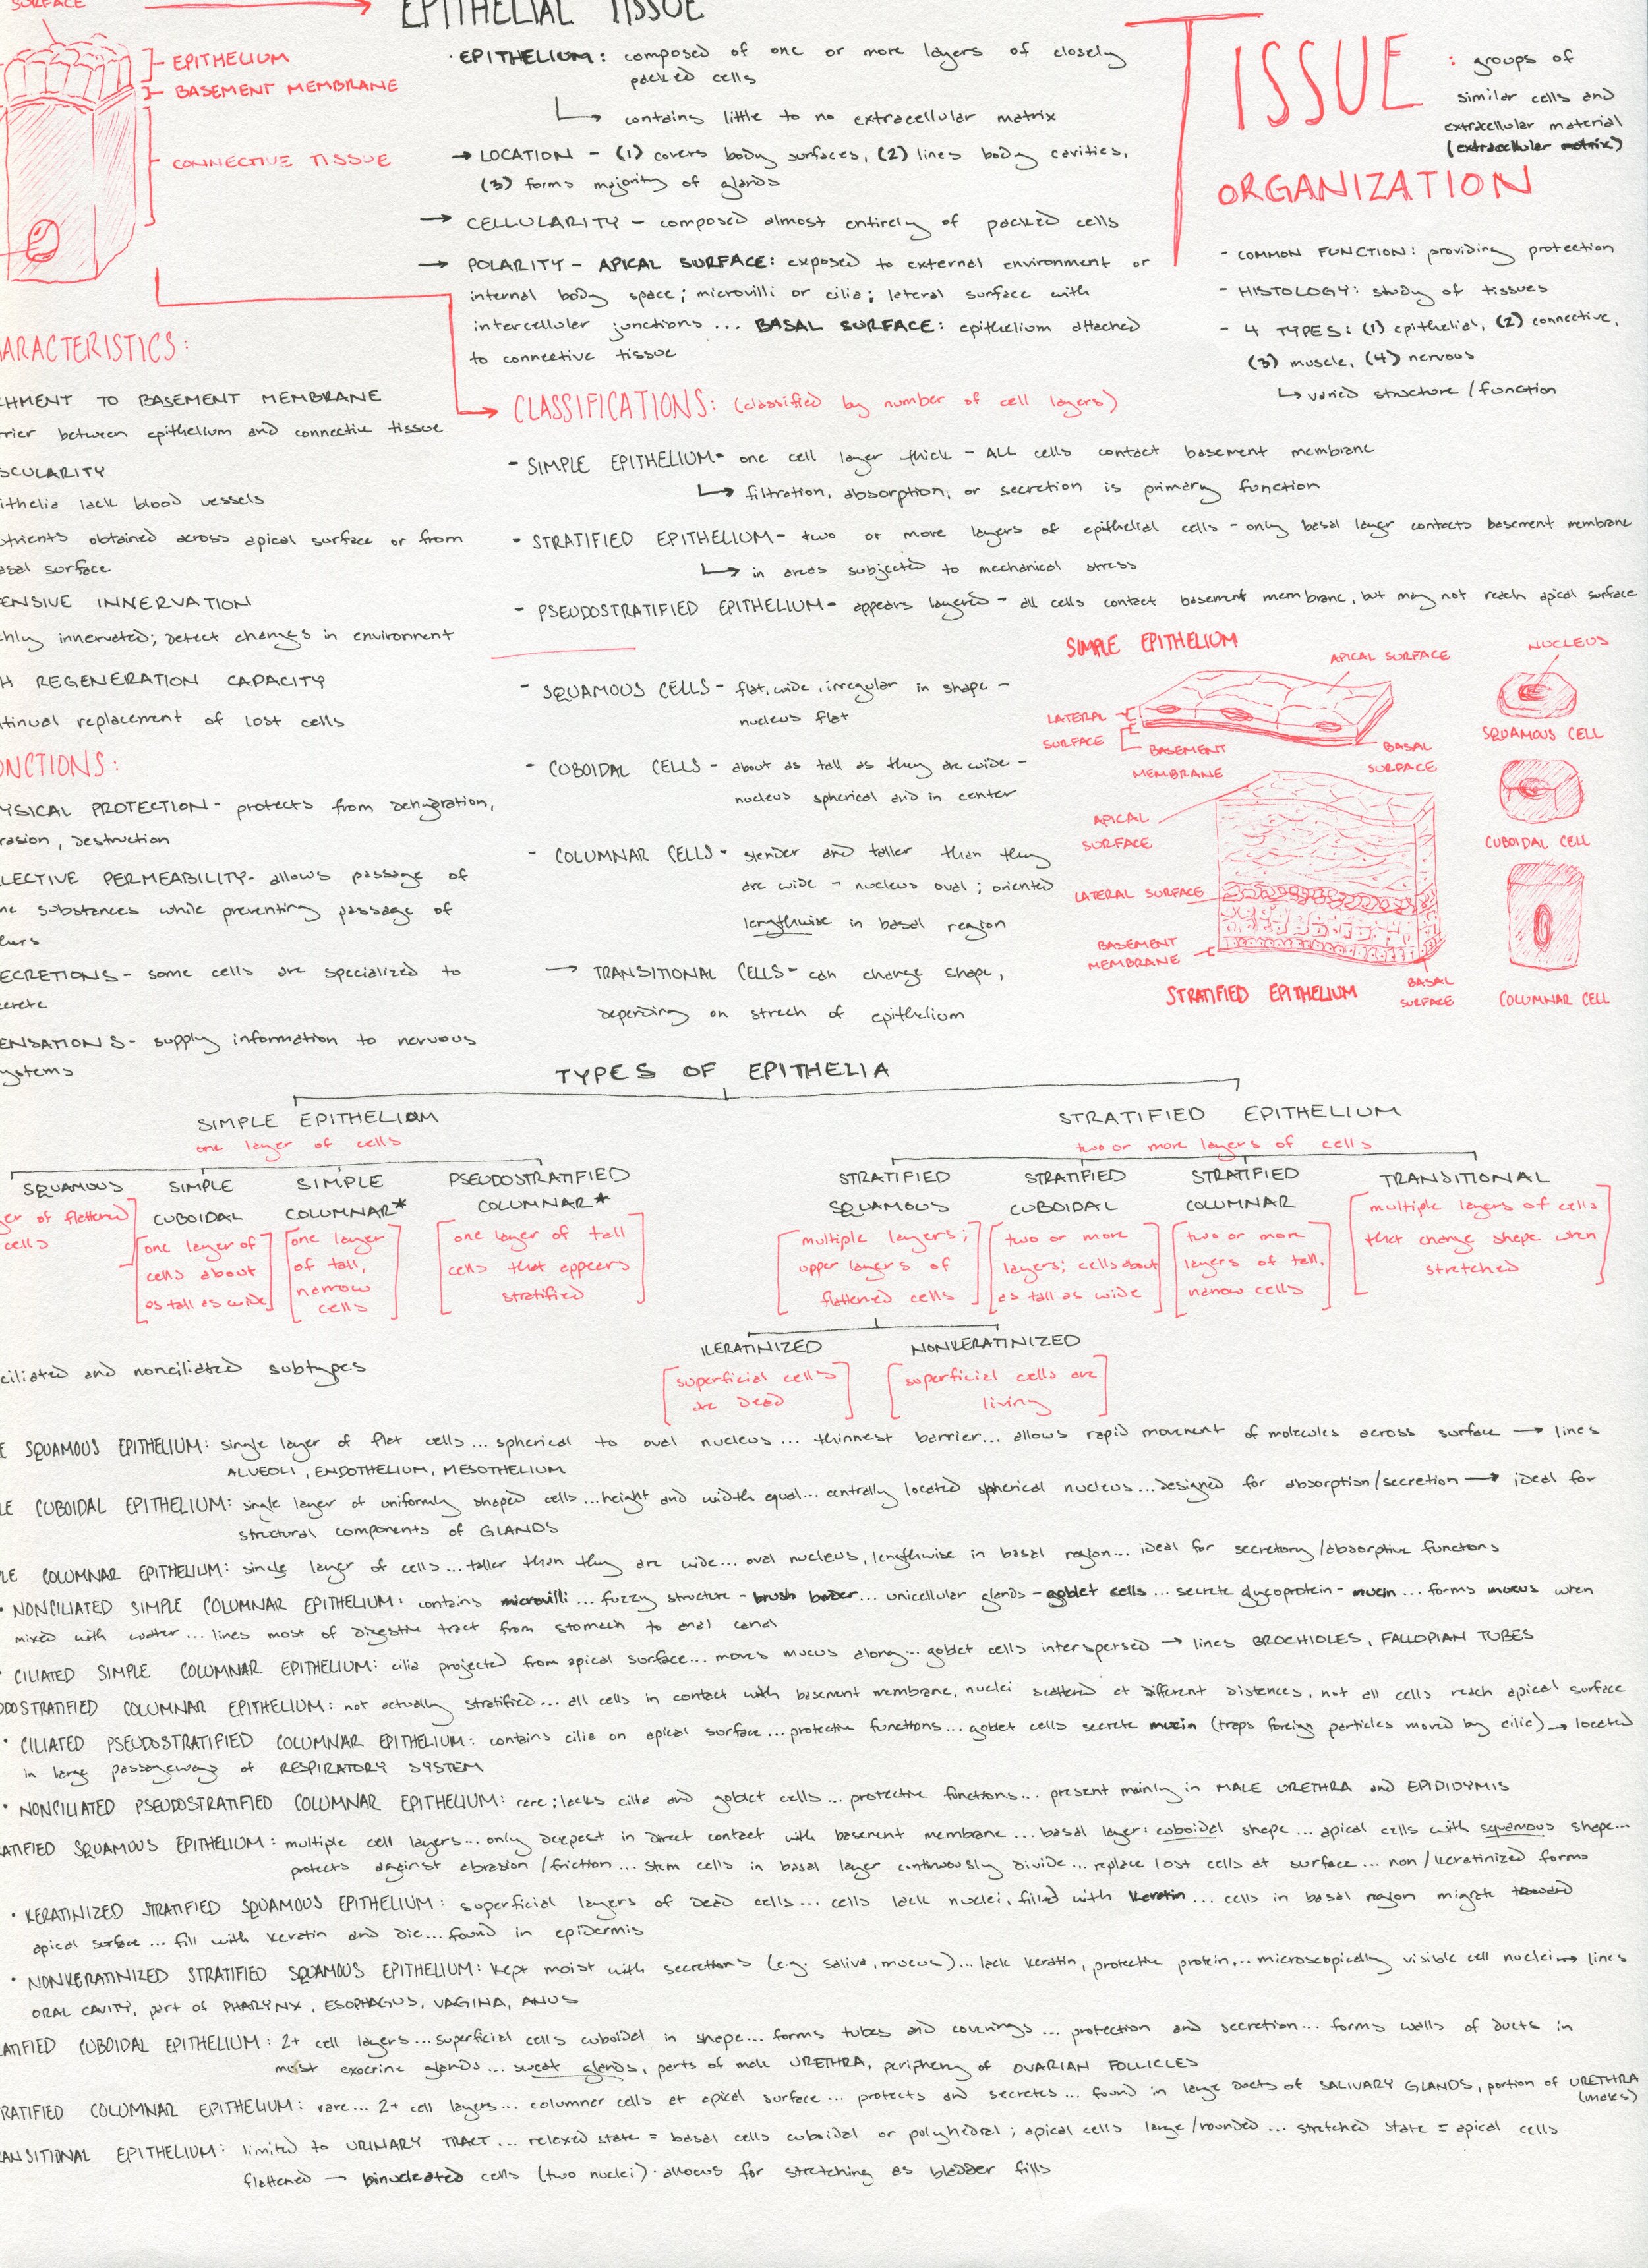 SURFACE
EPITHELIAL TISSUE
EPITHELIUM
BASEMENT MEMBRANE
CONNECTIVE TISSUE
· EPITHELIUM: composed of one or more layers of closely
packed cells
↳ contains little to no extracellular matrix
→ LOCATION - (1) covers body surfaces, (2) lines body cavities,
(3) forms majority of glands
→ CELLULARITY - composed almost entirely of packed cells
→ POLARITY - APICAL SURFACE: exposed to external environment or
internal body space; microvilli or cilia; lateral surface with
intercellular junctions... BASAL SURFACE: epithelium attached
to connective tissue
TISSUE : groups of
similar cells and
extracellular material
(extracellular matrix)
ORGANIZATION
- COMMON FUNCTION: providing protection
- HISTOLOGY: study of tissues
- 4 TYPES: (1) epithelial, (2) connective,
(3) muscle, (4) nervous
↳ varied structure/function
ARACTERISTICS:
HMENT TO BASEMENT MEMBRANE
rier between epithelium and connective tissue
SCULARITY
ithelia lack blood vessels
trients obtained across apical surface or from
asal surface
ENSIVE INNERVATION
hly innervated; detect changes in environment
H REGENERATION CAPACITY
tinual replacement of lost cells
NCTIONS:
YSICAL PROTECTION - protects from dehydration,
rasion, destruction
LECTIVE PERMEABILITY - allows passage of
me substances while preventing passage of
hers
ECRETIONS - some cells are specialized to
crete
ENSATIONS - supply information to nervous
ystems
CLASSIFICATIONS: (classified by number of cell layers)
- SIMPLE EPITHELIUM - one cell layer thick - ALL cells contact basement membrane
↳ filtration, absorption, or secretion is primary function
- STRATIFIED EPITHELIUM - two or more layers of epithelial cells - only basal layer contacts basement membrane
↳ in areas subjected to mechanical stress
- PSEUDOSTRATIFIED EPITHELIUM - appears layered - all cells contact basement membrane, but may not reach apical surface
- SQUAMOUS CELLS - flat, wide, irregular in shape -
nucleus flat
- CUBOIDAL CELLS - about as tall as they are wide -
nucleus spherical and in center
- COLUMNAR CELLS - slender and taller than they
are wide - nucleus oval; oriented
lengthwise in basal region
→ TRANSITIONAL CELLS - can change shape,
depending on strech of epithelium
SIMPLE EPITHELIUM
APICAL SURFACE
LATERAL
SURFACE
BASEMENT
MEMBRANE
BASAL
SURFACE
NUCLEUS
SQUAMOUS CELL
APICAL
SURFACE
LATERAL SURFACE
BASEMENT
MEMBRANE
BASAL
SURFACE
STRATIFIED EPITHELIUM
CUBOIDAL CELL
COLUMNAR CELL
TYPES OF EPITHELIA
SIMPLE EPITHELIUM
one layer of cells
SQUAMOUS
er of flattened
cells
SIMPLE
CUBOIDAL
one layer of
cells about
as tall as wide
SIMPLE
COLUMNAR*
one layer
of tall,
narrow
cells
PSEUDOSTRATIFIED
COLUMNAR*
one layer of tall
cells that appears
stratified
STRATIFIED EPITHELIUM
two or more layers of cells
STRATIFIED
SQUAMOUS
multiple layers;
upper layers of
flattened cells
STRATIFIED
CUBOIDAL
two or more
layers; cells about
as tall as wide
STRATIFIED
COLUMNAR
two or more
layers of tall,
narrow cells
TRANSITIONAL
multiple layers of cells
that change shape when
stretched
KERATINIZED
superficial cells
are dead
NONKERATINIZED
superficial cells are
living
ciliated and nonciliated subtypes
E SQUAMOUS EPITHELIUM: single layer of flat cells... spherical to oval nucleus... thinnest barrier... allows rapid movement of molecules across surface → lines
ALVEOLI, ENDOTHELIUM, MESOTHELIUM
LE CUBOIDAL EPITHELIUM: single layer of uniformly shaped cells... height and width equal... centrally located spherical nucleus... designed for absorption/secretion → ideal for
structural components of GLANDS
LE COLUMNAR EPITHELIUM: single layer of cells... taller than they are wide... oval nucleus, lengthwise in basal region... ideal for secretory/absorptive functions
· NONCILIATED SIMPLE COLUMNAR EPITHELIUM: contains microvilli... fuzzy structure - brush border... unicellular glands - goblet cells... secrete glycoprotein - mucin... forms mucus when
mixed with water... lines most of digestive tract from stomach to anal canal
· CILIATED SIMPLE COLUMNAR EPITHELIUM: cilia projected from apical surface... moves mucus along... goblet cells interspersed → lines BROCHIOLES, FALLOPIAN TUBES
DOSTRATIFIED COLUMNAR EPITHELIUM: not actually stratified... all cells in contact with basement membrane, nuclei scattered at different distances, not all cells reach apical surface
· CILIATED PSEUDOSTRATIFIED COLUMNAR EPITHELIUM: contains cilia on apical surface... protective functions... goblet cells secrete mucin (traps foreign particles moved by cilia) → located
in large passageways of RESPIRATORY SYSTEM
· NONCILIATED PSEUDOSTRATIFIED COLUMNAR EPITHELIUM: rare; lacks cilia and goblet cells... protective functions... present mainly in MALE URETHRA and EPIDIDYMIS
ATIFIED SQUAMOUS EPITHELIUM: multiple cell layers... only deepest in direct contact with basement membrane... basal layer: cuboidal shape... apical cells with squamous shape...
protects against abrasion/friction... stem cells in basal layer continuously divide... replace lost cells at surface... non/keratinized forms
· KERATINIZED STRATIFIED SQUAMOUS EPITHELIUM: superficial layers of dead cells... cells lack nuclei, filled with keratin... cells in basal region migrate toward
apical surface... fill with keratin and die... found in epidermis
· NONKERATINIZED STRATIFIED SQUAMOUS EPITHELIUM: kept moist with secretions (e.g. saliva, mucus)... lack keratin, protective protein... microscopically visible cell nuclei → lines
ORAL CAVITY, part of PHARYNX, ESOPHAGUS, VAGINA, ANUS
ATIFIED CUBOIDAL EPITHELIUM: 2+ cell layers... superficial cells cuboidal in shape... forms tubes and coverings... protection and secretion... forms walls of ducts in
most exocrine glands... sweat glands, parts of male URETHRA, periphery of OVARIAN FOLLICLES
RATIFIED COLUMNAR EPITHELIUM: rare... 2+ cell layers... columner cells at apical surface... protects and secretes... found in large ducts of SALIVARY GLANDS, portion of URETHRA
(males)
ANSITIONAL EPITHELIUM: limited to URINARY TRACT... relaxed state = basal cells cuboidal or polyhedral; apical cells large/rounded... stretched state = apical cells
flattened → binucleated cells (two nuclei) · allows for stretching as bladder fills